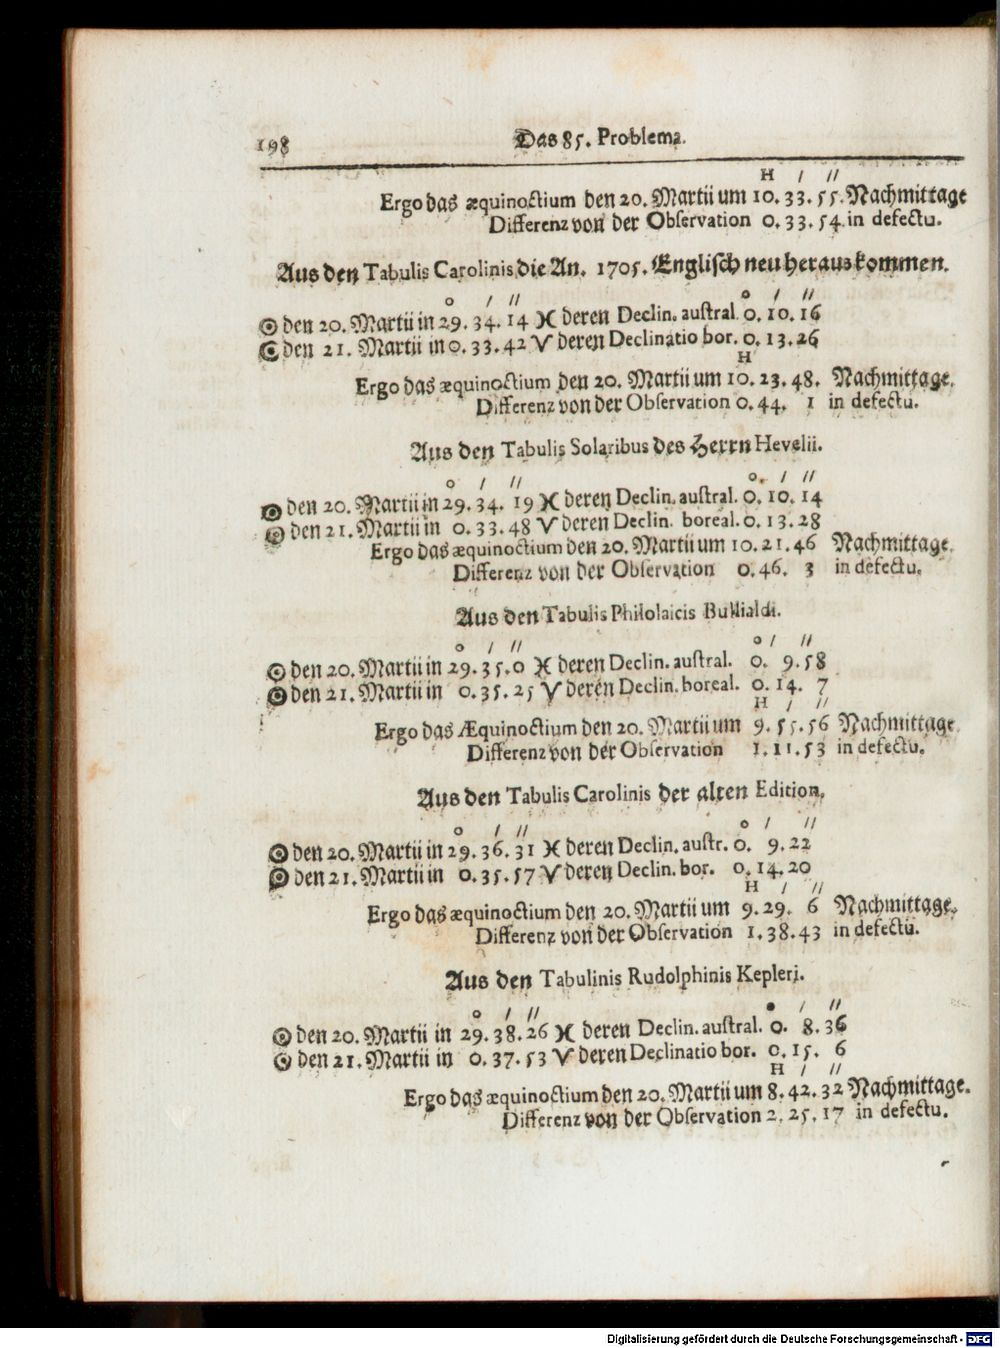 198 Das 85. Problema.
H / //
Ergo das æquinoctium den 20. Martii um 10. 33. 55. Nachmittage
Differenz von der Observation 0. 33. 54. in defectu.
Aus den Tabulis Carolinis die An. 1705. Englisch neu heraus kommen.
o / // o / //
☉ den 20. Martii in 29. 34. 14 ♓ deren Declin. austral. 0. 10. 16
☉ den 21. Martii in 0. 33. 42 ♈ deren Declinatio bor. 0. 13. 26
H
Ergo das æquinoctium den 20. Martii um 10. 23. 48. Nachmittage.
Differenz von der Observation 0. 44. 1 in defectu.
Aus den Tabulis Solaribus des Herrn Hevelii.
o / // o. / //
☉ den 20. Martii in 29. 34. 19 ♓ deren Declin. austral. 0. 10. 14
☉ den 21. Martii in 0. 33. 48 ♈ deren Declin. boreal. 0. 13. 28
Ergo das æquinoctium den 20. Martii um 10. 21. 46 Nachmittage.
Differenz von der Observation 0. 46. 3 in defectu.
Aus den Tabulis Philolaicis Bullialdi.
o / // o / //
☉ den 20. Martii in 29. 35. 0 ♓ deren Declin. austral. 0. 9. 58
☉ den 21. Martii in 0. 35. 25 ♈ deren Declin. boreal. 0. 14. 7
H / //
Ergo das Æquinoctium den 20. Martii um 9. 55. 56 Nachmittage.
Differenz von der Observation 1. 11. 53 in defectu.
Aus den Tabulis Carolinis der alten Edition.
o / // o / //
☉ den 20. Martii in 29. 36. 31 ♓ deren Declin. austr. 0. 9. 22
☉ den 21. Martii in 0. 35. 57 ♈ deren Declin. bor. 0. 14. 20
H / //
Ergo das æquinoctium den 20. Martii um 9. 29. 6 Nachmittage.
Differenz von der Observation 1. 38. 43 in defectu.
Aus den Tabulinis Rudolphinis Kepleri.
o / // o / //
☉ den 20. Martii in 29. 38. 26 ♓ deren Declin. austral. 0. 8. 36
☉ den 21. Martii in 0. 37. 53 ♈ deren Declinatio bor. 0. 15. 6
H / //
Ergo das æquinoctium den 20. Martii um 8. 42. 32 Nachmittage.
Differenz von der Observation 2. 25. 17 in defectu.
Digitalisierung gefördert durch die Deutsche Forschungsgemeinschaft - DFG